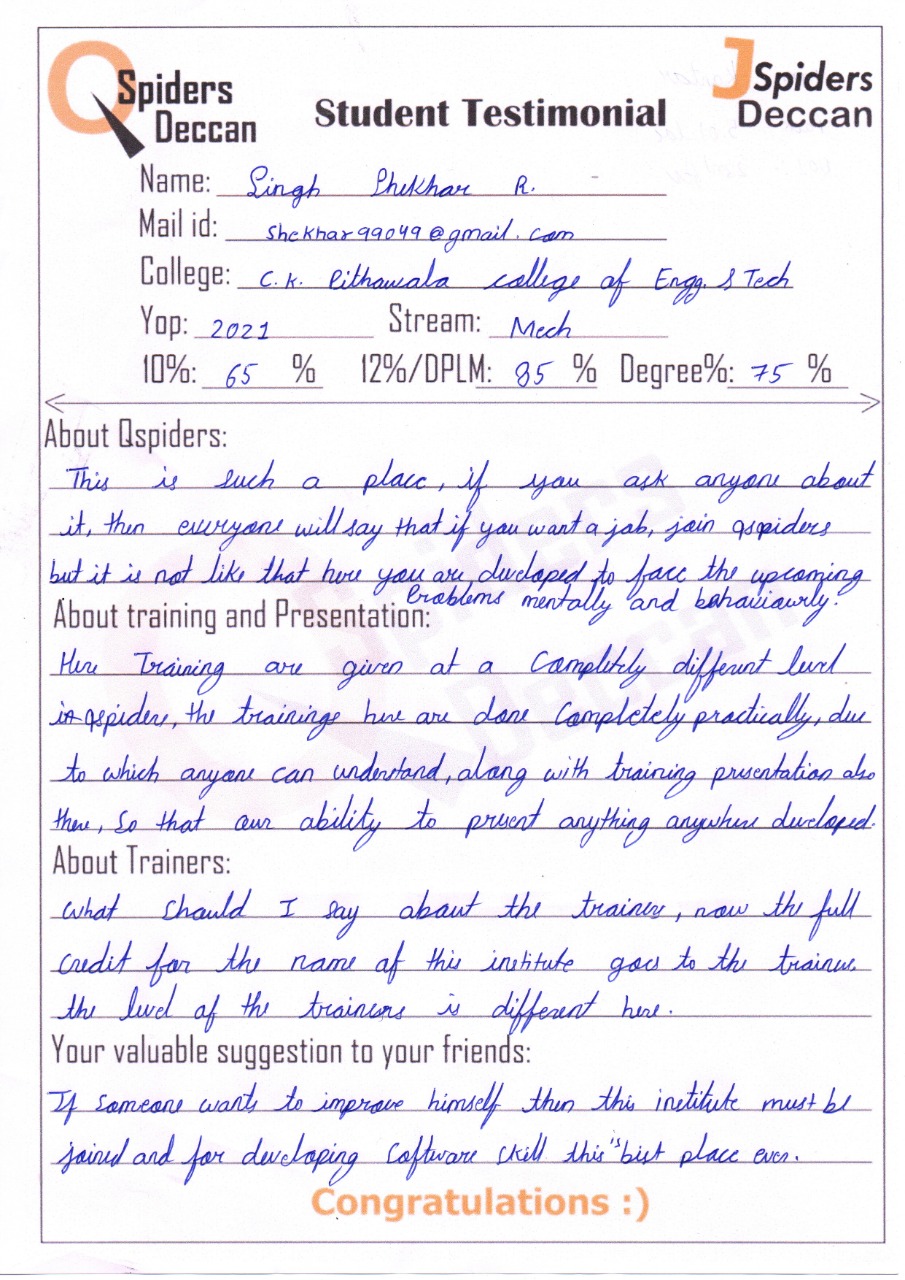 QSpiders Deccan
Student Testimonial
JSpiders Deccan
Name: Singh Shekhar R.
Mail id: shekhar99049@gmail.com
College: C.K. Pithawala college of Engg. & Tech
Yop: 2021 Stream: Mech
10%: 65 % 12%/DPLM: 85 % Degree%: 75 %
About Qspiders:
This is such a place, if you ask anyone about
it, then everyone will say that if you want a job, join qspiders
but it is not like that here you are developed to face the upcoming
Problems mentally and behaviourly.
About training and Presentation:
Here Training are given at a completely different level
in qspiders, the trainings here are done completely practically, due
to which anyone can understand, along with training presentation also
there, So that our ability to present anything anywhere developed.
About Trainers:
What should I say about the trainers, now the full
credit for the name of this institute goes to the trainers.
the level of the trainers is different here.
Your valuable suggestion to your friends:
If someone wants to improve himself then this institute must be
joined and for developing software skill this is best place ever.
Congratulations :)